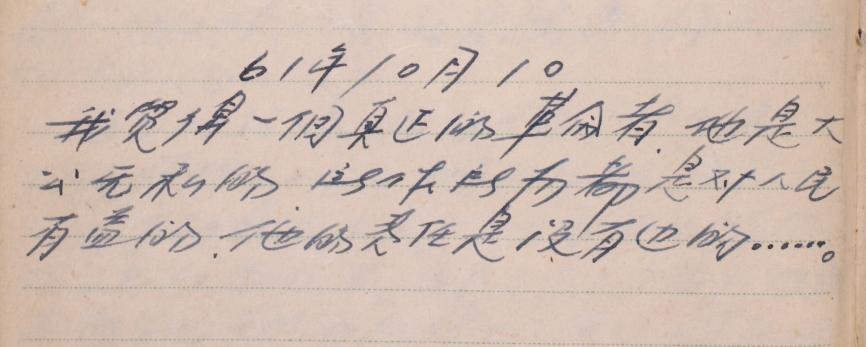 61年10月10
我覺得一個真正的革命者.他是大
公无私的.所作所为都是对人民
有益的.他的责任是没有边的……。